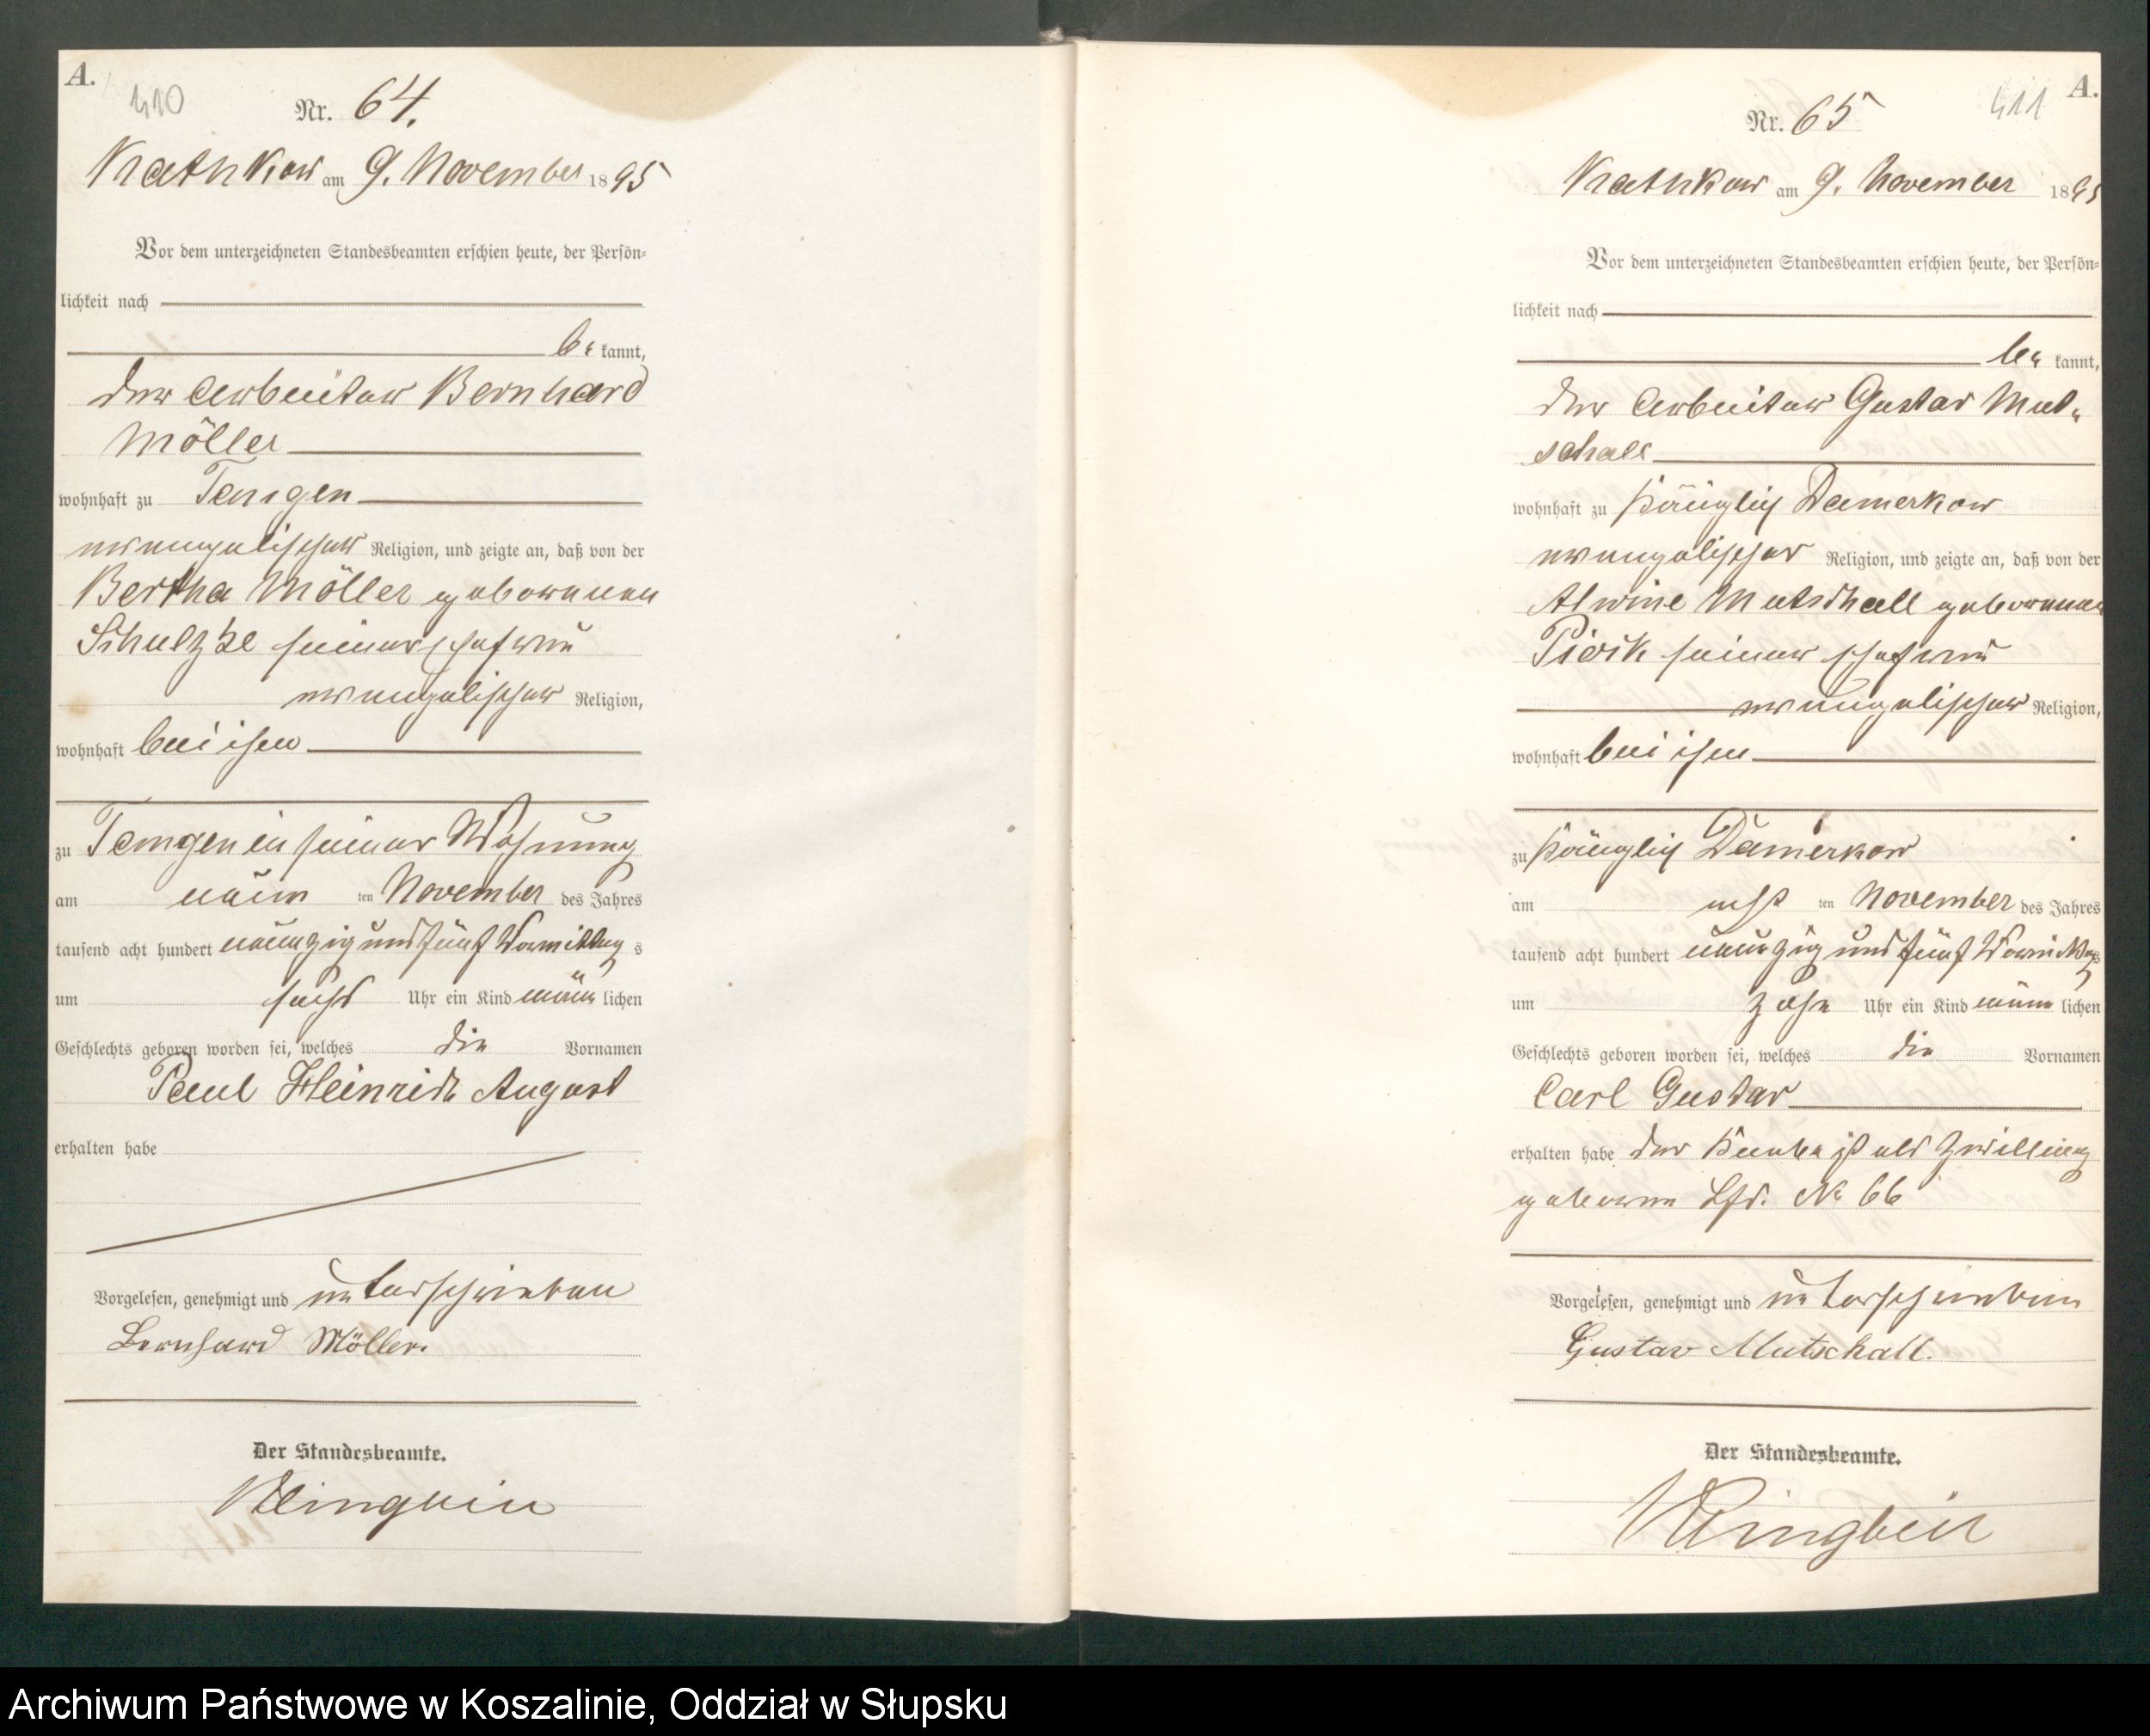 A.
410
Nr. 64.
Kathkow am 9. November 1895
Vor dem unterzeichneten Standesbeamten erschien heute, der Persön-
lichkeit nach
be kannt,
der Arbeiter Bernhard
Möller
wohnhaft zu
evangelischer Religion, und zeigte an, daß von der
Bertha Möller geborenen
Schulzke seiner Ehefrau
evangelischer Religion,
wohnhaft bei ihm
zu in seiner Wohnung
am neun ten November des Jahres
tausend acht hundert neunzig und fünf Vormittag s
um sechs Uhr ein Kind männ lichen
Geschlechts geboren worden sei, welches die Vornamen
Paul Heinrich August
erhalten habe
Vorgelesen, genehmigt und unterschrieben
Bernhard Möller.
Der Standesbeamte.
Klingbeil
A.
411
Nr. 65
Kathkow am 9. November 1895
Vor dem unterzeichneten Standesbeamten erschien heute, der Persön-
lichkeit nach
be kannt,
der Arbeiter Gustav Mut-
schall
wohnhaft zu Damerkow
evangelischer Religion, und zeigte an, daß von der
Alwine Mutschall geborenen
seiner Ehefrau
evangelischer Religion,
wohnhaft bei ihm
zu Damerkow
am acht ten November des Jahres
tausend acht hundert neunzig und fünf Vormittag s
um zehn Uhr ein Kind männ lichen
Geschlechts geboren worden sei, welches die Vornamen
Carl Gustav
erhalten habe der Knabe ist als Zwilling
geboren Lfd. No 66
Vorgelesen, genehmigt und unterschrieben
Gustav Mutschall.
Der Standesbeamte.
Klingbeil
Archiwum Państwowe w Koszalinie, Oddział w Słupsku